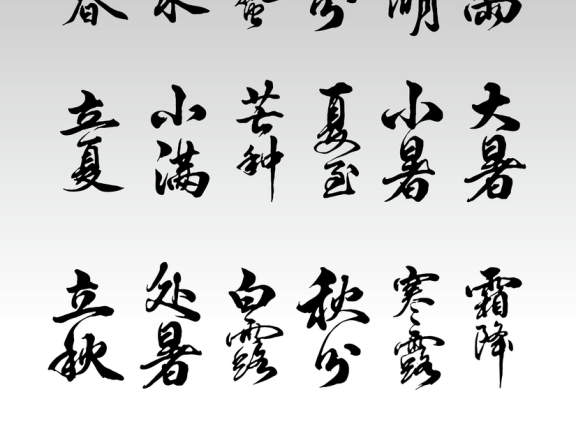 春 水 蛰 分 明 雨
立夏 小满 芒种 夏至 小暑 大暑
立秋 处暑 白露 秋分 寒露 霜降